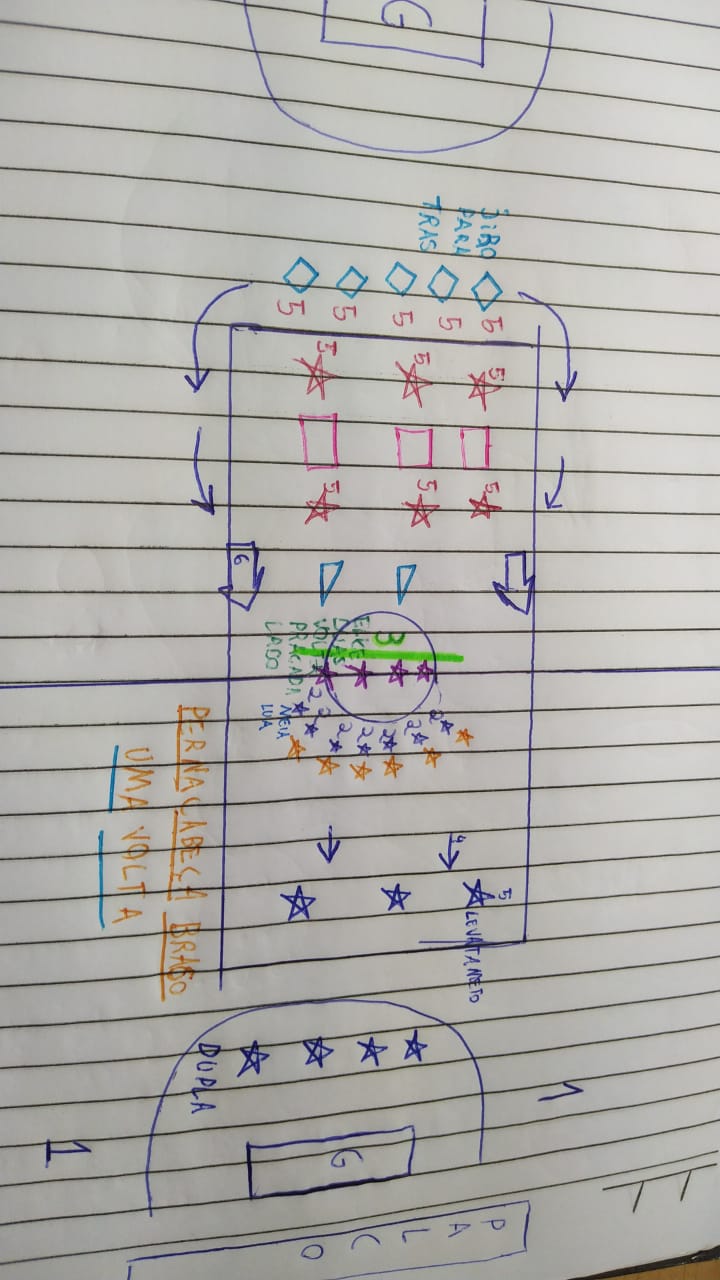 G
JIRO
PARA
TRAS
5
5
5
5
5
5 5
5 5
5 5
6
3
DUAS
VOLTA
PRACADA
LADO
2
2
2
2
2
2
2
MEIA
LUA
4
5
LEVATANETO
PERNA CABEÇA BRAÇO
UMA VOLTA
1
DUPLA
G
1
PALCO